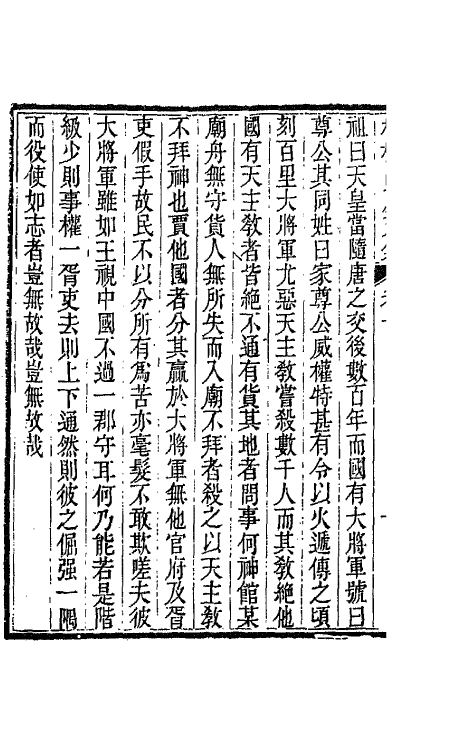 祖曰天皇當隨唐之交後數百年而國有大將軍號曰
尊公其同姓曰家尊公威權特甚有令以火遞傳之頃
刻百里大將軍尤惡天主教嘗殺數千人而其教絕他
國有天主教者皆絕不通有貨其地者問事何神館某
廟舟無守貨人無所失而入廟不拜者殺之以天主教
不拜神也賈他國者分其贏於大將軍無他官府及胥
吏假手故民不以分所有爲苦亦毫髮不敢欺嗟夫彼
大將軍雖如王視中國不過一郡守耳何乃能若是階
級少則事權一胥吏去則上下通然則彼之倔强一隅
而役使如志者豈無故哉豈無故哉